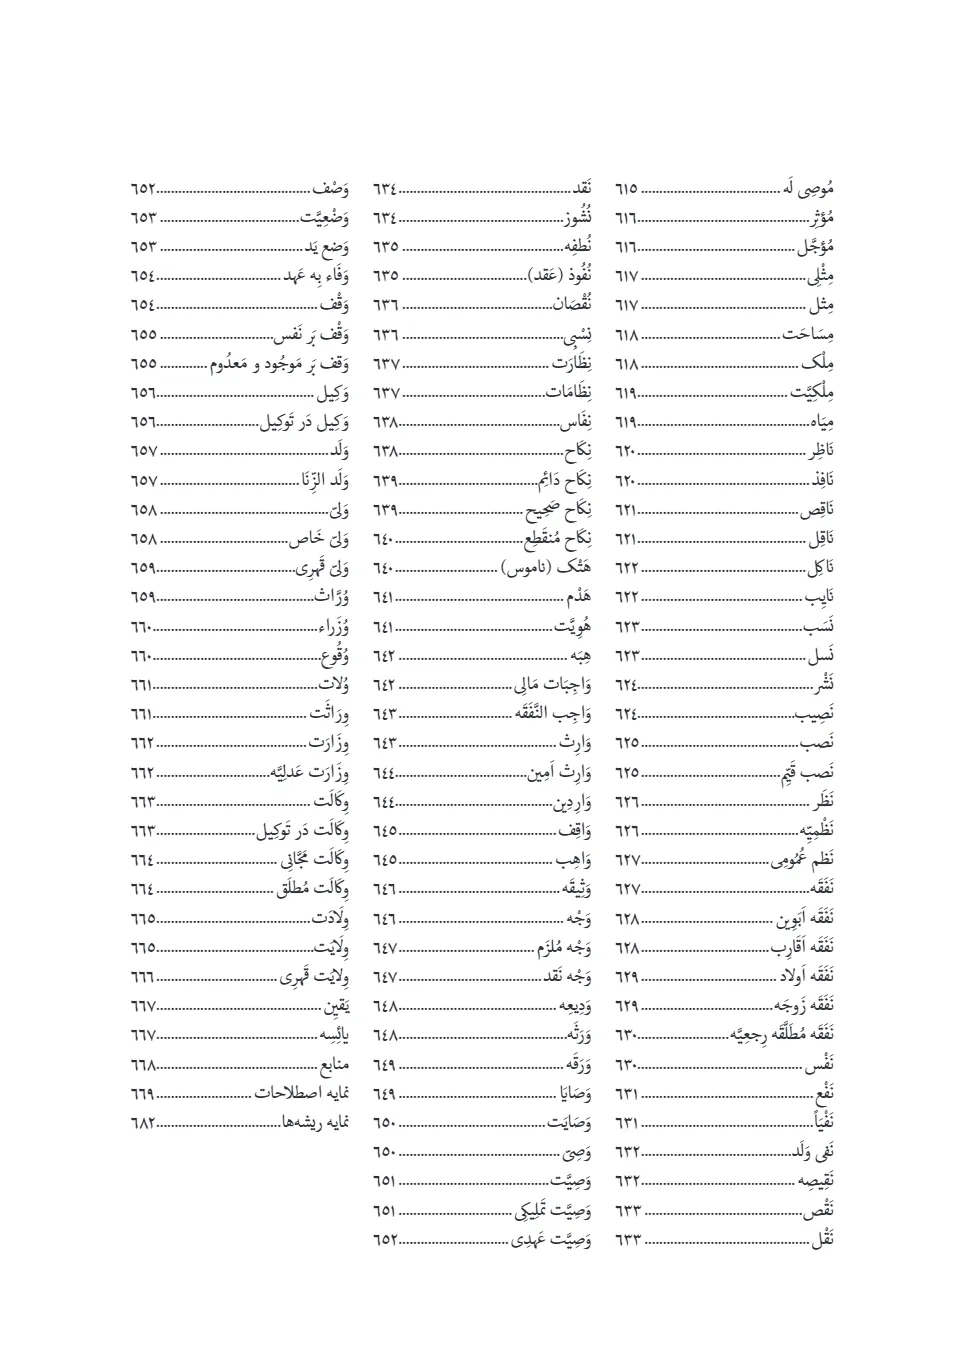 مُوصِی لَه ...... ٦١٥
مُؤثِر ...... ٦١٦
مُؤجَّل ...... ٦١٦
مِثْلِی ...... ٦١٧
مِثل ...... ٦١٧
مِسَاحَت ...... ٦١٨
مِلْک ...... ٦١٨
مِلْکِیَّت ...... ٦١٩
مِیَاه ...... ٦١٩
نَاظِر ...... ٦٢٠
نَافِذ ...... ٦٢٠
نَاقِص ...... ٦٢١
نَاقِل ...... ٦٢١
نَاکِل ...... ٦٢٢
نَایِب ...... ٦٢٢
نَسَب ...... ٦٢٣
نَسل ...... ٦٢٣
نَشْر ...... ٦٢٤
نَصِیب ...... ٦٢٤
نَصب ...... ٦٢٥
نَصب قَیِّم ...... ٦٢٥
نَظَر ...... ٦٢٦
نَظْمِیِّه ...... ٦٢٦
نَظم عُمُومِی ...... ٦٢٧
نَفَقَه ...... ٦٢٧
نَفَقَه اَبَوِین ...... ٦٢٨
نَفَقَه اَقَارِب ...... ٦٢٨
نَفَقَه اَولاد ...... ٦٢٩
نَفَقَه زَوجَه ...... ٦٢٩
نَفَقَه مُطَلَّقَه رِجعِیَّه ...... ٦٣٠
نَفْس ...... ٦٣٠
نَفْع ...... ٦٣١
نَفْیَاً ...... ٦٣١
نَفی وَلَد ...... ٦٣٢
نَقِیصِه ...... ٦٣٢
نَقْص ...... ٦٣٣
نَقْل ...... ٦٣٣
نَقد ...... ٦٣٤
نُشُوز ...... ٦٣٤
نُطفِه ...... ٦٣٥
نُفُوذ (عَقد) ...... ٦٣٥
نُقْصَان ...... ٦٣٦
نِسْبِی ...... ٦٣٦
نِظَارَت ...... ٦٣٧
نِظَامَات ...... ٦٣٧
نِفَاس ...... ٦٣٨
نِکَاح ...... ٦٣٨
نِکَاح دَائِم ...... ٦٣٩
نِکَاح صَحِیح ...... ٦٣٩
نِکَاح مُنقَطِع ...... ٦٤٠
هَتْک (ناموس) ...... ٦٤٠
هَدْم ...... ٦٤١
هُوِیَّت ...... ٦٤١
هِبَه ...... ٦٤٢
وَاجِبَات مَالِی ...... ٦٤٢
وَاجِب النَّفَقَه ...... ٦٤٣
وَارِث ...... ٦٤٣
وَارِث اَمِین ...... ٦٤٤
وَارِدِین ...... ٦٤٤
وَاقِف ...... ٦٤٥
وَاهِب ...... ٦٤٥
وَثِیقَه ...... ٦٤٦
وَجْه ...... ٦٤٦
وَجْه مُلزَم ...... ٦٤٧
وَجْه نَقد ...... ٦٤٧
وَدِیعِه ...... ٦٤٨
وَرَثَه ...... ٦٤٨
وَرَقَه ...... ٦٤٩
وَصَایَا ...... ٦٤٩
وَصَایَت ...... ٦٥٠
وَصِیّ ...... ٦٥٠
وَصِیَّت ...... ٦٥١
وَصِیَّت تَملِیکِی ...... ٦٥١
وَصِیَّت عَهدِی ...... ٦٥٢
وَصْف ...... ٦٥٢
وَضْعِیَّت ...... ٦٥٣
وَضع یَد ...... ٦٥٣
وَفَاء بِه عَهد ...... ٦٥٤
وَقْف ...... ٦٥٤
وَقْف بَر نَفس ...... ٦٥٥
وَقف بَر مَوجُود و مَعدُوم ...... ٦٥٥
وَکِیل ...... ٦٥٦
وَکِیل دَر تَوکِیل ...... ٦٥٦
وَلَد ...... ٦٥٧
وَلَد الزِّنَا ...... ٦٥٧
وَلیّ ...... ٦٥٨
وَلیّ خَاص ...... ٦٥٨
وَلیّ قَهرِی ...... ٦٥٩
وُرَّاث ...... ٦٥٩
وُزَراء ...... ٦٦٠
وُقُوع ...... ٦٦٠
وُلات ...... ٦٦١
وِرَاثَت ...... ٦٦١
وِزَارَت ...... ٦٦٢
وِزَارَت عَدلِیَّه ...... ٦٦٢
وِکَالَت ...... ٦٦٣
وِکَالَت دَر تَوکِیل ...... ٦٦٣
وِکَالَت مَجَّانِی ...... ٦٦٤
وِکَالَت مُطلَق ...... ٦٦٤
وِلَادَت ...... ٦٦٥
وِلَایَت ...... ٦٦٥
وِلایَت قَهرِی ...... ٦٦٦
یَقِین ...... ٦٦٧
یائِسِه ...... ٦٦٧
منابع ...... ٦٦٨
نمایه اصطلاحات ...... ٦٦٩
نمایه ریشه‌ها ...... ٦٨٢